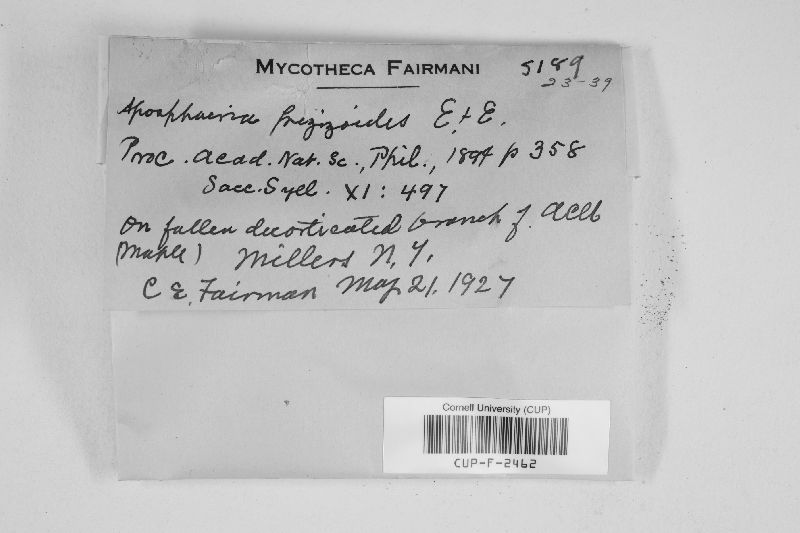 MYCOTHECA FAIRMANI 5189
23-39
Aposphaeria pezizoides E. & E.
Proc. Acad. Nat. Sc., Phil., 1894 p 358
Sacc. Syll. XI: 497
On fallen decorticated branch of
(Maple) Millers N.Y.
C E. Fairman May 21, 1927
Cornell University (CUP)
CUP-F-2462